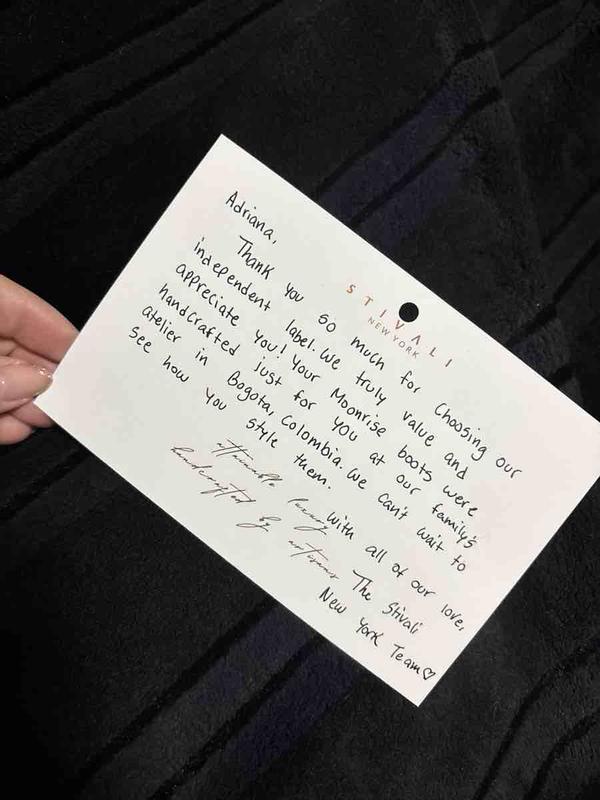 STIVALI
NEW YORK
Adriana,
Thank you so much for Choosing our
independent label. We truly value and
appreciate you! Your Moonrise boots were
handcrafted just for you at our family's
atelier in Bogota, Colombia. We can't wait to
see how you style them.
attainable luxury
handcrafted by artisans
With all of our love,
The Stivali
New York Team♡